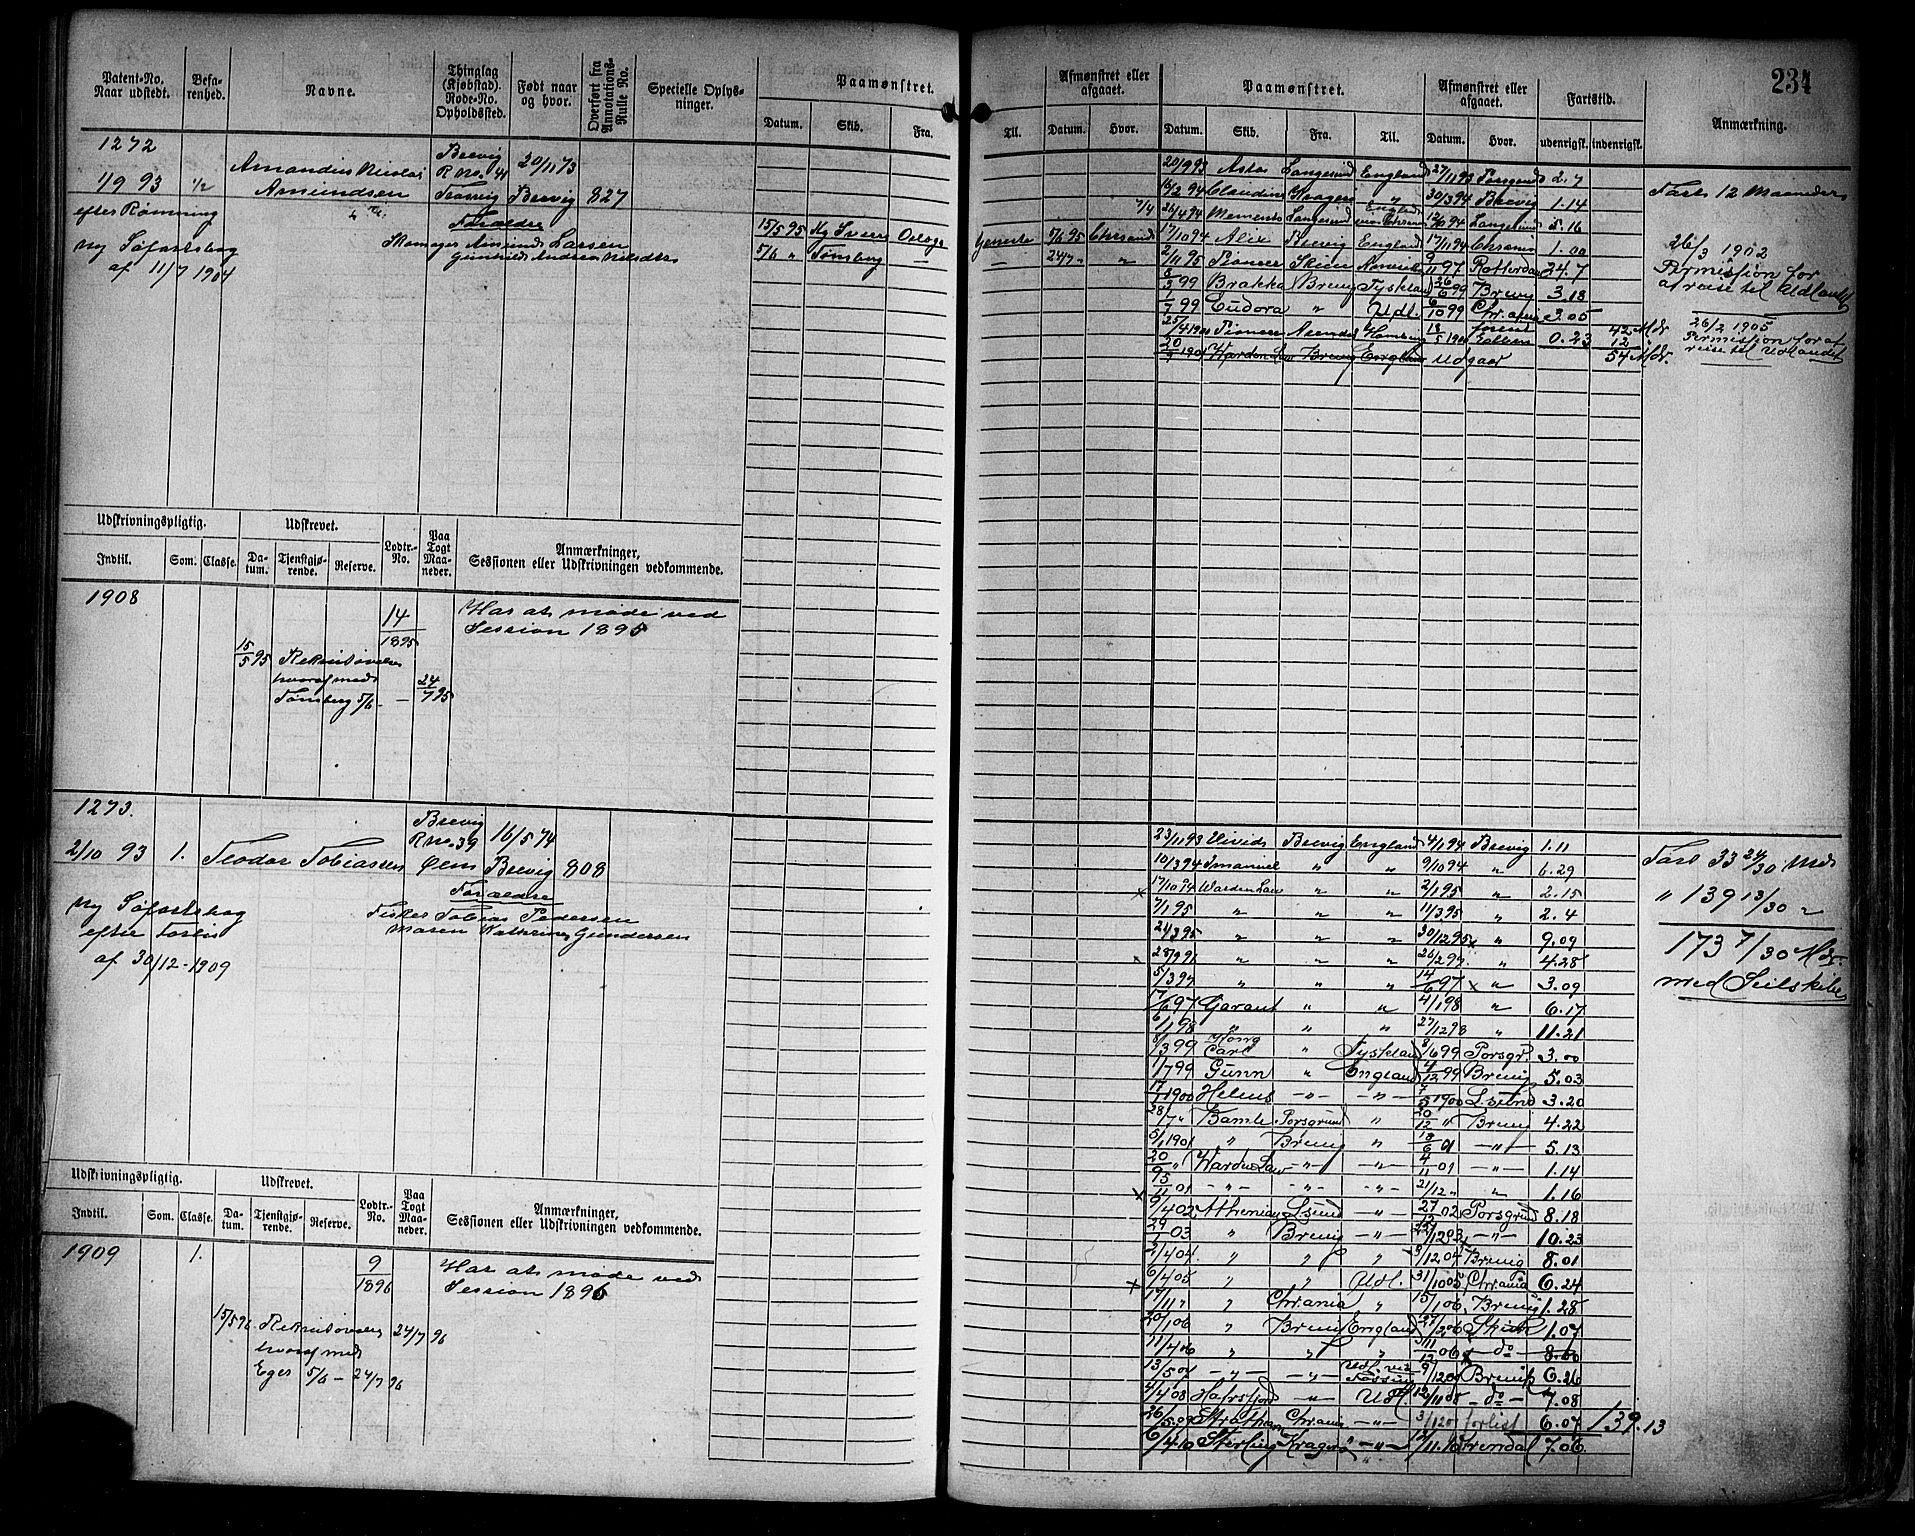 234
Patent-No. Naar udstedt.
Befarenhed.
Navne.
Thinglag (Kjøbstad). Rode-No. Opholdssted.
Født naar og hvor.
Overført fra Annotations-Rulle No.
Specielle Oplysninger.
Paamønstret.
Datum. Skib. Fra. Til.
Afmønstret eller afgaaet.
Datum. Hvor.
Paamønstret.
Datum. Skib. Fra. Til.
Afmønstret eller afgaaet.
Datum. Hvor.
Fartstid.
udenrigsk. indenrigsk.
Anmærkning.
1272
1/9 93 1/2 Amandus Nicolai Amundsen
Brevig R No. 41
20/11 73 Brevig 827
efter Rømning
ny Søfartsbog
af 11/7 1904
Forældre
Skomager Amund Larsen
15/5 95
5/6 " Tønsberg —
5/6 95
— 24/7 " "
20/9 93 Asta Langesund England 27/11 93 2.7
16/2 94 Claudine Kragerø " 30/3 94 Brevig 1.14
26/4 94 Memento Langesund 5.16
17/10 94 Alix Brevig England 17/11 94 1.00
2/11 95 Pioneer Skien 9/11 97 Rotterdam 24.7
8/3 99 Brakka Brevig Tyskland 26/6 99 Brevig 3.18
1/7 99 Eudora " Udl. 6/10 99 3.05
25/4 1901 Pioneer Arendal Hamburg 18/5 1901 0.23 42 Mdr
12 "
20/7 1901 Warden Law Brevig England Udgaar 54 Mdr.
Farts 12 Maaneder
26/3 1902
Permission for
afreise til Udlandet
26/2 1905
Permission for af
reise til Udlandet
Udskrivningspligtig.
Indtil. Som. Classe.
Udskrevet.
Datum. Tjenstgjørende. Reserve.
Lodtr.-No.
Paa Togt Maaneder.
Anmærkninger, Sessionen eller Udskrivningen vedkommende.
1908
14/1895
Har at møde ved
Session 1895
15/5 95
hvoraf med
Tønsberg 5/6 — — 24/7 95
1273.
2/10 93 1. Teodor Tobiassen
Brevig R No. 39
16/5 74 Brevig 808
ny Søfartsbog
efter Forlis
af 30/12-1909
Forældre
Fisker Tobias Pedersen
Maren Kathrine Gundersen
23/11 93 Vivid Brevig England 4/1 94 Brevig 1.11
10/3 94 Imanuel " " 9/10 94 " 6.29
x 17/10 94 Warden Law " " 2/1 95 " 2.15
7/1 95 " " " 11/3 95 " 2.4
24/3 95 " " " 30/12 95 x " 9.09
x " " " 26/2 97 " 4.28
5/3 97 " " " 14/6 97 x " 3.09
17/6 97 Garant " " 4/1 98 " 6.17
6/1 98 " " " 27/12 98 " 11.21
8/3 99 Kong Carl " Tyskland 8/6 99 Porsgr. 3.00
1/7 99 Gunn " England 4/12 99 Brevig 5.03
17/1 1900 —"— —"— 7/5 1900 L.sund 3.20
28/7 " Bamle Porsgrund " 20/12 " Brevig 4.22
5/1 1901 " Brevig " 18/6 01 —"— 5.13
20/7 " Warden Law —"— —"— 4/11 01 —"— 1.14
x —"— —"— —"— 21/12 " " 1.16
9/4 02 L.sund —"— 27/12 02 Porsgrund 8.18
29/1 03 " Brevig —"— —"— 10.23
2/4 04 " " " 3/12 04 Brevig 8.01
x 6/4 05 " " Udl. 31/10 05 Chr.ania 6.24
17/11 " " Chr.ania " 15/1 06 Brevig 1.28
20/1 06 " Brevig England 27/2 06 1.07
11/4 06 " " " 06 do 8.00
13/5 07 —"— —"— Udl. 6.26
4/4 08 Hafrsfjord —"— Udl. —do— 7.08
26/5 09 Chr.ania —"— forlist 6.07 139.13
6/4 10 Sterling Kragerø —"— Arendal 7.06
Fart 33 24/30 Mdr
" 139 13/30 "
173 7/30 Mdr.
med Seilskibe
Udskrivningspligtig.
Indtil. Som. Classe.
Udskrevet.
Datum. Tjenstgjørende. Reserve.
Lodtr.-No.
Paa Togt Maaneder.
Anmærkninger, Sessionen eller Udskrivningen vedkommende.
1909 1.
9/1896
Har at møde ved
Session 1896
15/5 96 24/7 96
hvoraf med
Eger 5/6 — 24/7 96